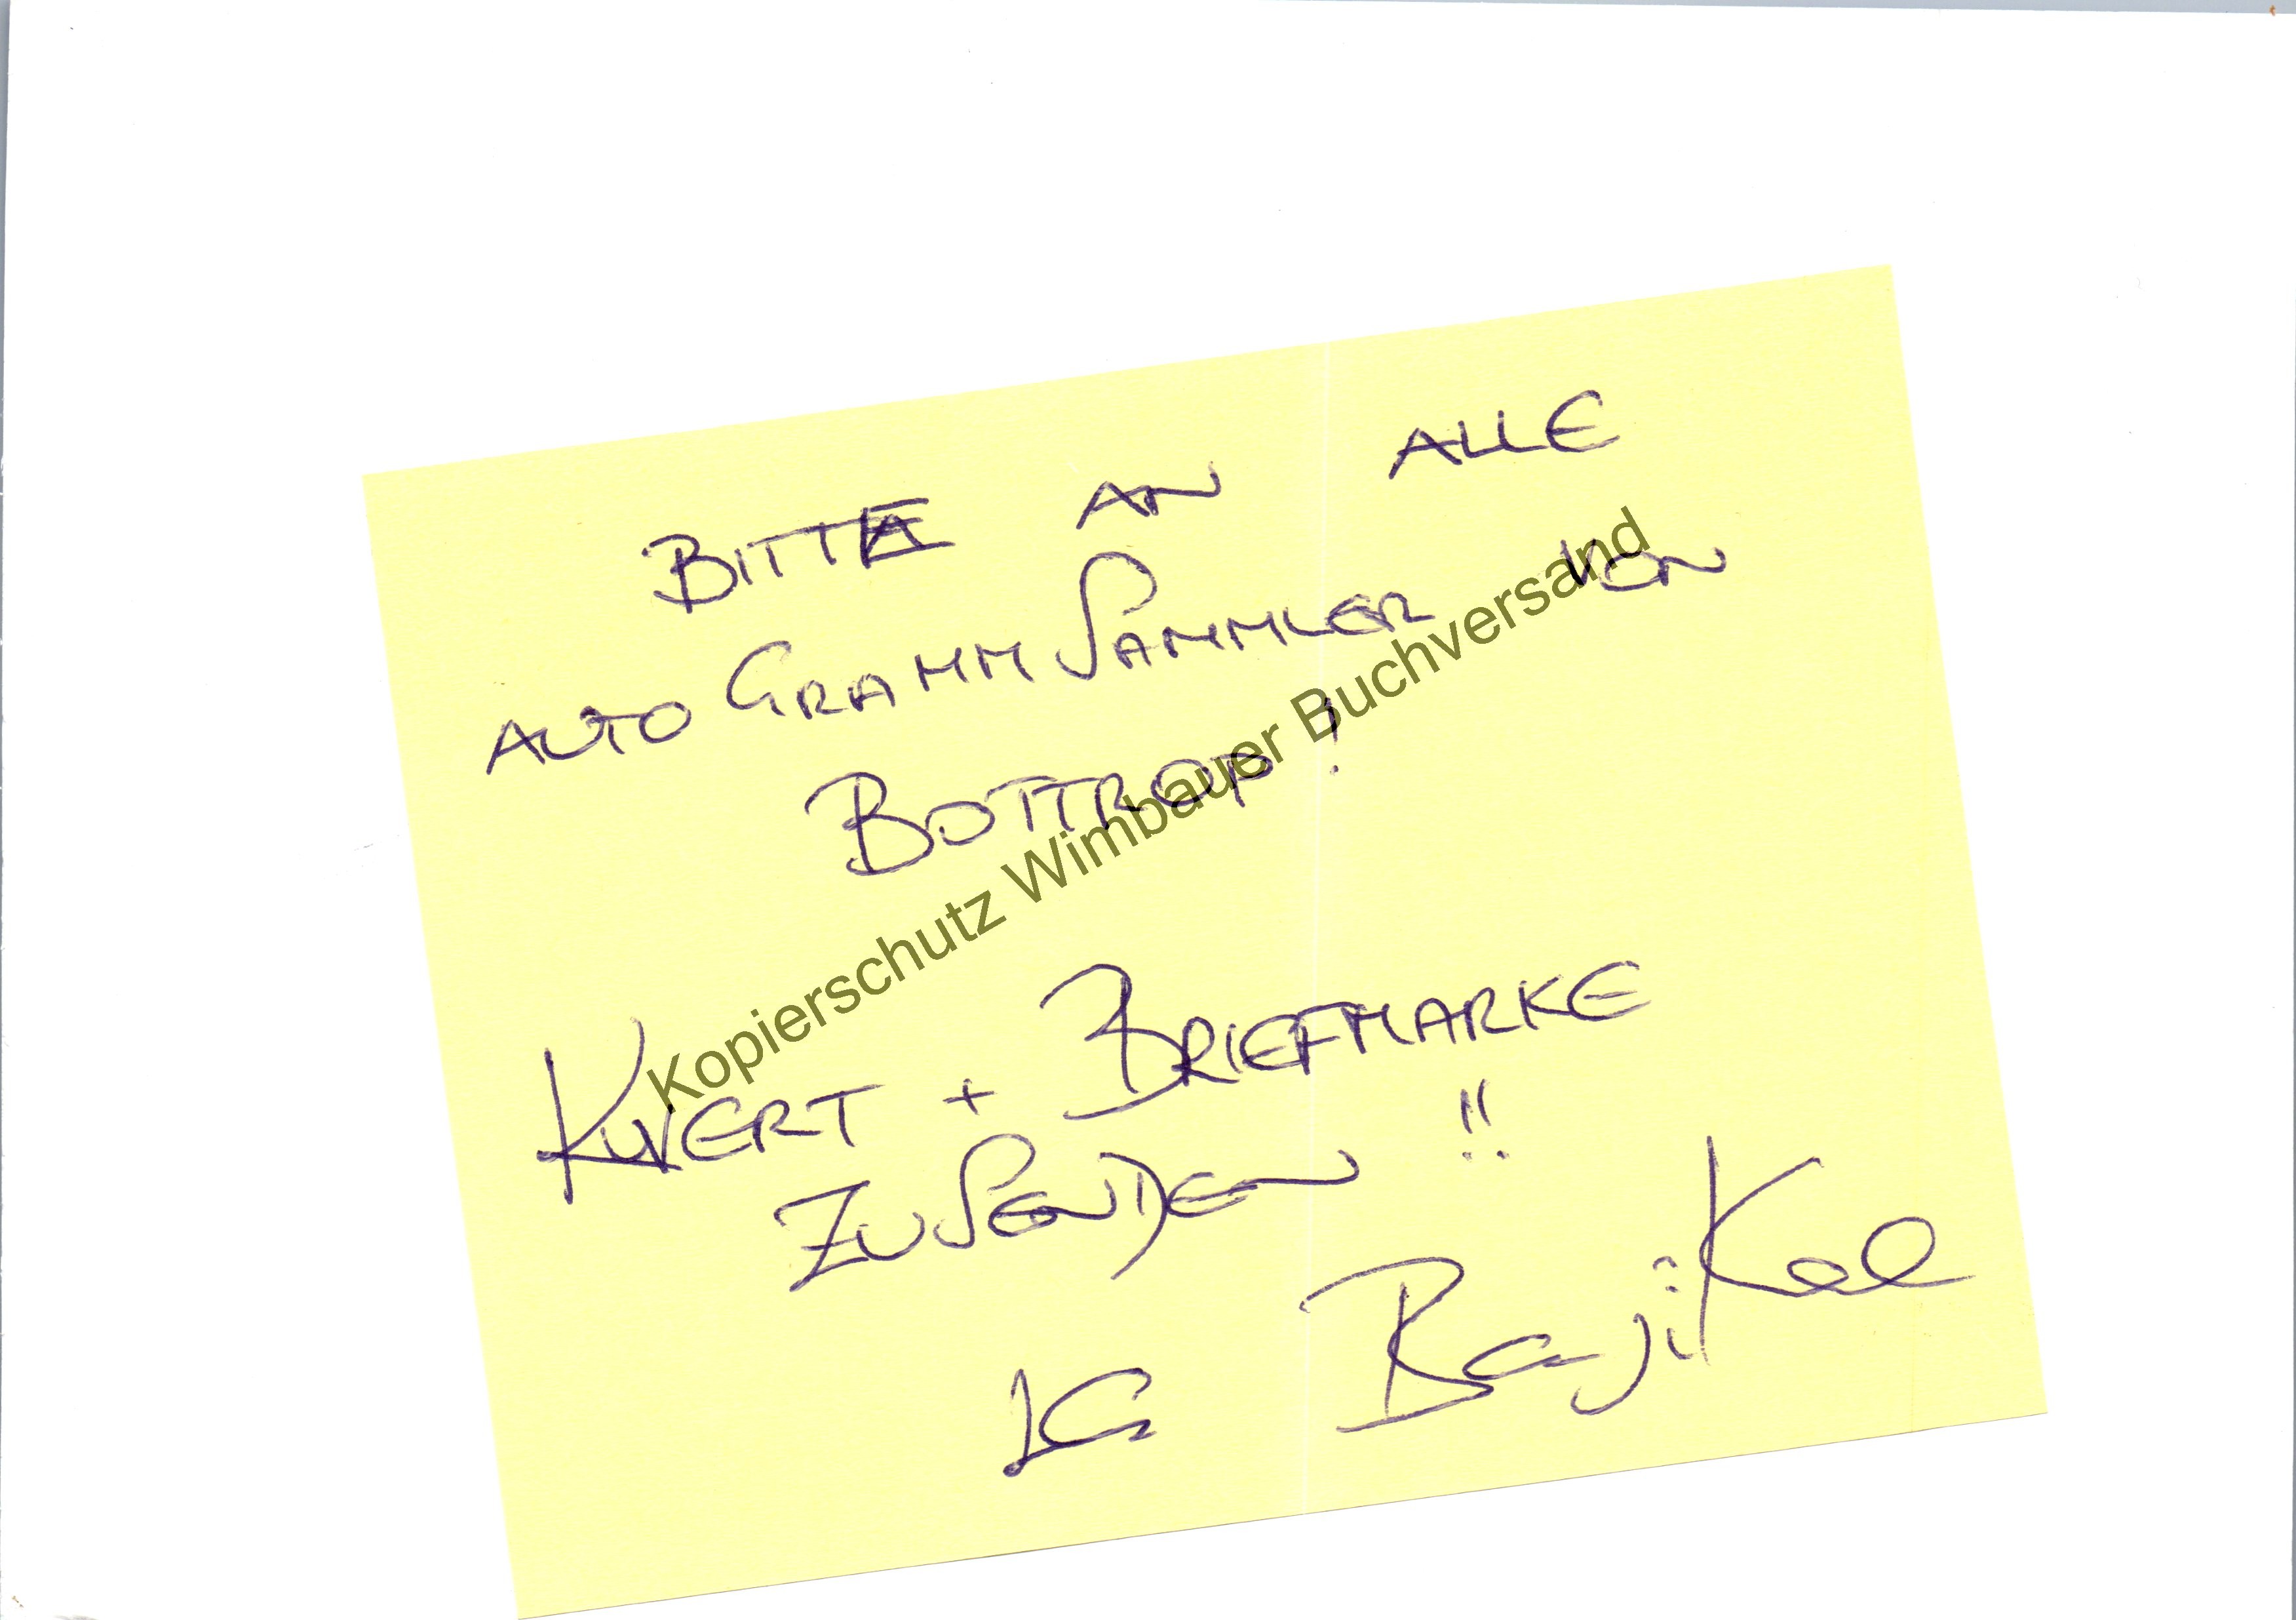 BITTE AN ALLE
AUTOGRAMMSAMMLER VON
BOTTROP!
KUVERT + BRIEFMARKE
ZUSENDEN!!
LG
Kopierschutz Wimbauer Buchversand